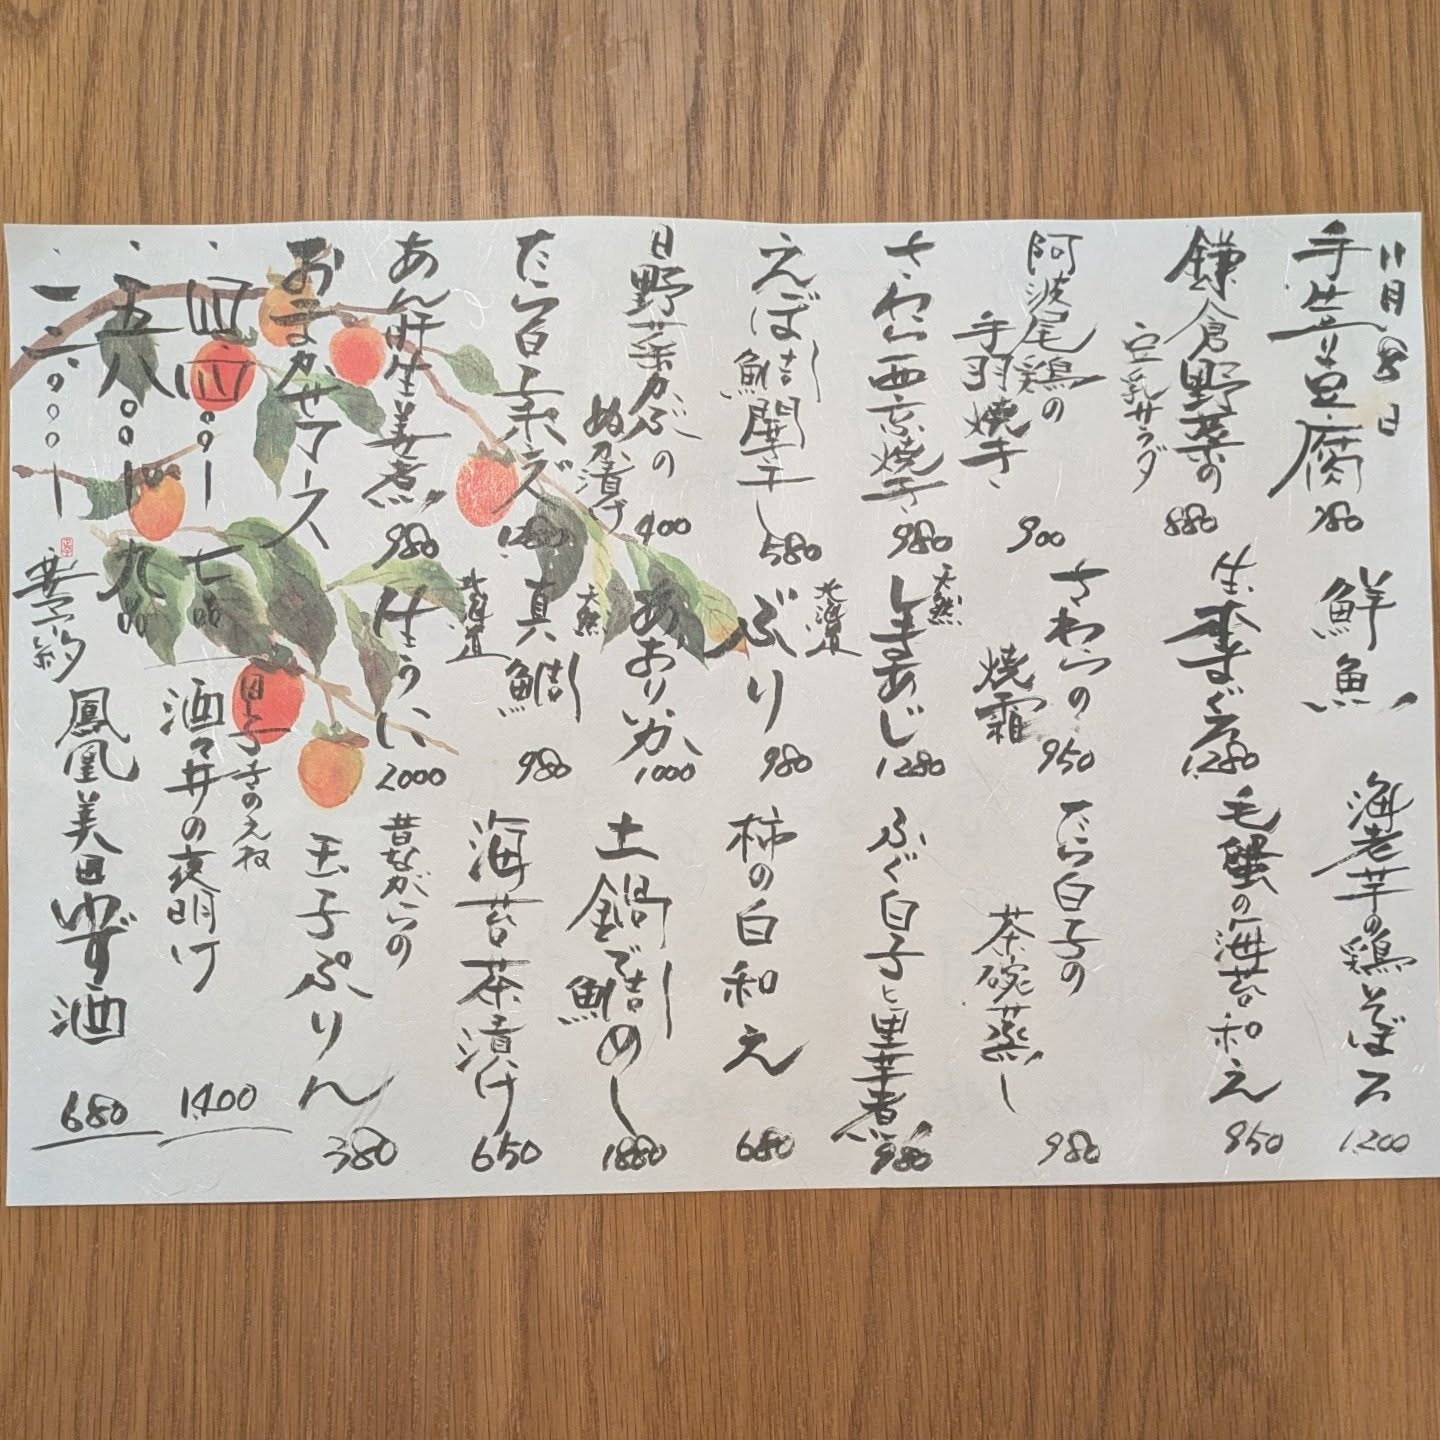 11月8日
手造り豆腐
780
鎌倉野菜の
豆乳サラダ
880
阿波尾鶏の
手羽焼き
900
さわら西京焼き
980
えぼ鯛開干し
580
日野菜かぶの
ぬか漬け
400
たら白子ポン
1280
あん肝生姜煮
980
おまかせコース
・四四〇〇ー 七品
・五八〇〇ー 九品
・一二〇〇〇ー
要予約
鮮魚
生本まぐろ
1,280
さわらの
焼霜
950
天然
しまあじ
1280
北海道
ぶり
980
あおりいか
1000
天然
真鯛
980
北海道
生うに
2000
海老芋の鶏そぼろ
1,200
毛蟹の海苔和え
950
たら白子の
茶碗蒸し
980
ふぐ白子と里芋煮
980
柿の白和え
680
土鍋で鯛めし
1880
海苔茶漬け
650
昔ながらの
玉子ぷりん
380
甲子きのえね
酒々井の夜明け
1,400
鳳凰美田ゆず酒
680